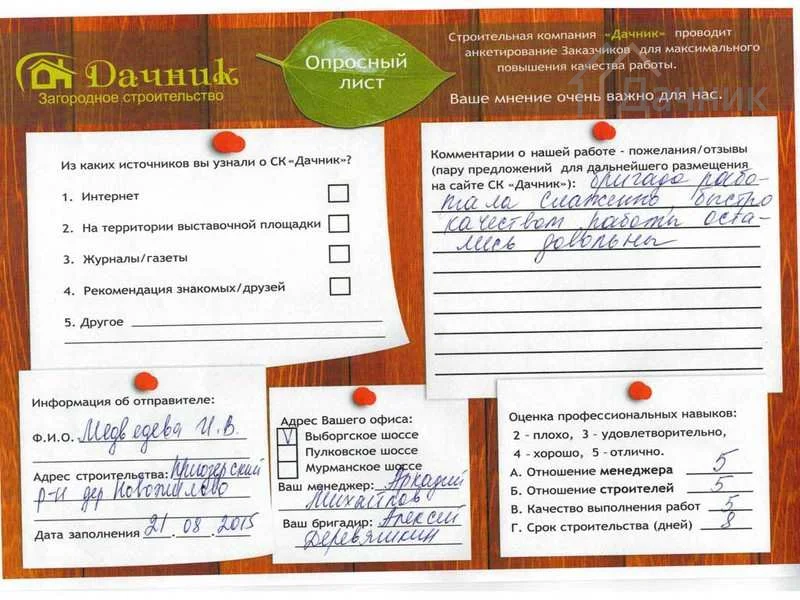 Дачник
Загородное строительство
Опросный
лист
Строительная компания «Дачник» проводит
анкетирование Заказчиков для максимального
повышения качества работы.
Ваше мнение очень важно для нас.
Дачник
Из каких источников вы узнали о СК «Дачник»?
1. Интернет
2. На территории выставочной площадки
3. Журналы/газеты
4. Рекомендация знакомых/друзей
5. Другое
Комментарии о нашей работе - пожелания/отзывы
(пару предложений для дальнейшего размещения
на сайте СК «Дачник»): бригада рабо-
тала слаженно, быстро
качеством работы оста-
лись довольны
Информация об отправителе:
Ф.И.О. Медведева И.В.
Адрес строительства: Приозерский
р-н дер
Дата заполнения 21.08.2015
Адрес Вашего офиса:
V Выборгское шоссе
Пулковское шоссе
Мурманское шоссе
Ваш менеджер: Аркадий
Михайлов
Ваш бригадир: Алексей
Деревяшкин
Оценка профессиональных навыков:
2 - плохо, 3 - удовлетворительно,
4 - хорошо, 5 - отлично.
А. Отношение менеджера 5
Б. Отношение строителей 5
В. Качество выполнения работ 5
Г. Срок строительства (дней) 8